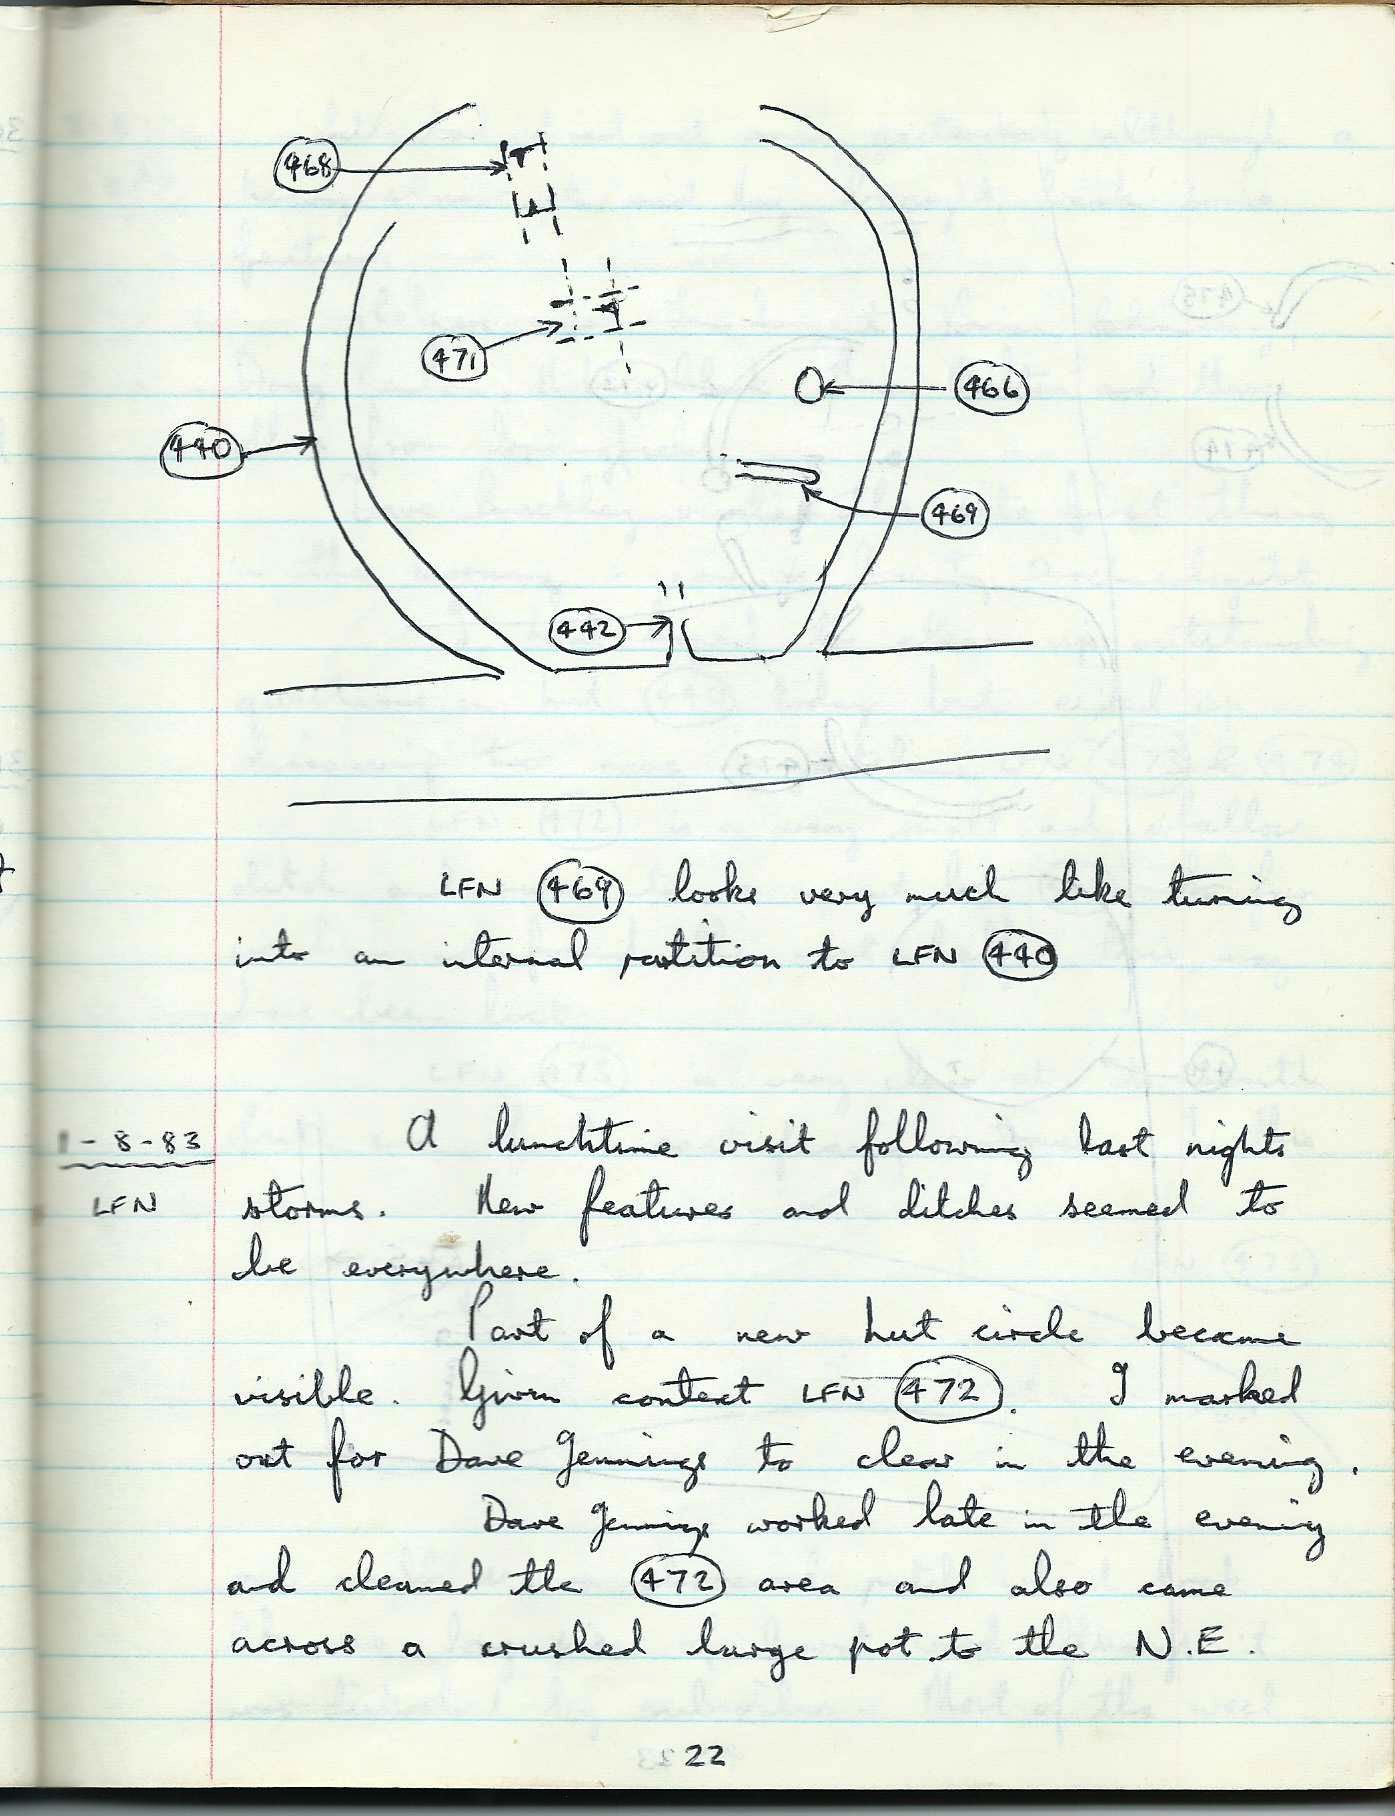 468
471
466
440
469
442
LFN 469 looks very much like turning
into an internal partition to LFN 440
1-8-83
LFN
A lunchtime visit following last nights
storms. New features and ditches seemed to
be everywhere.
Part of a new hut circle became
visible. Given context LFN 472. I marked
out for Dave Jennings to clear in the evening.
Dave Jennings worked late in the evening
and cleaned the 472 area and also came
across a crushed large pot to the N.E.
22